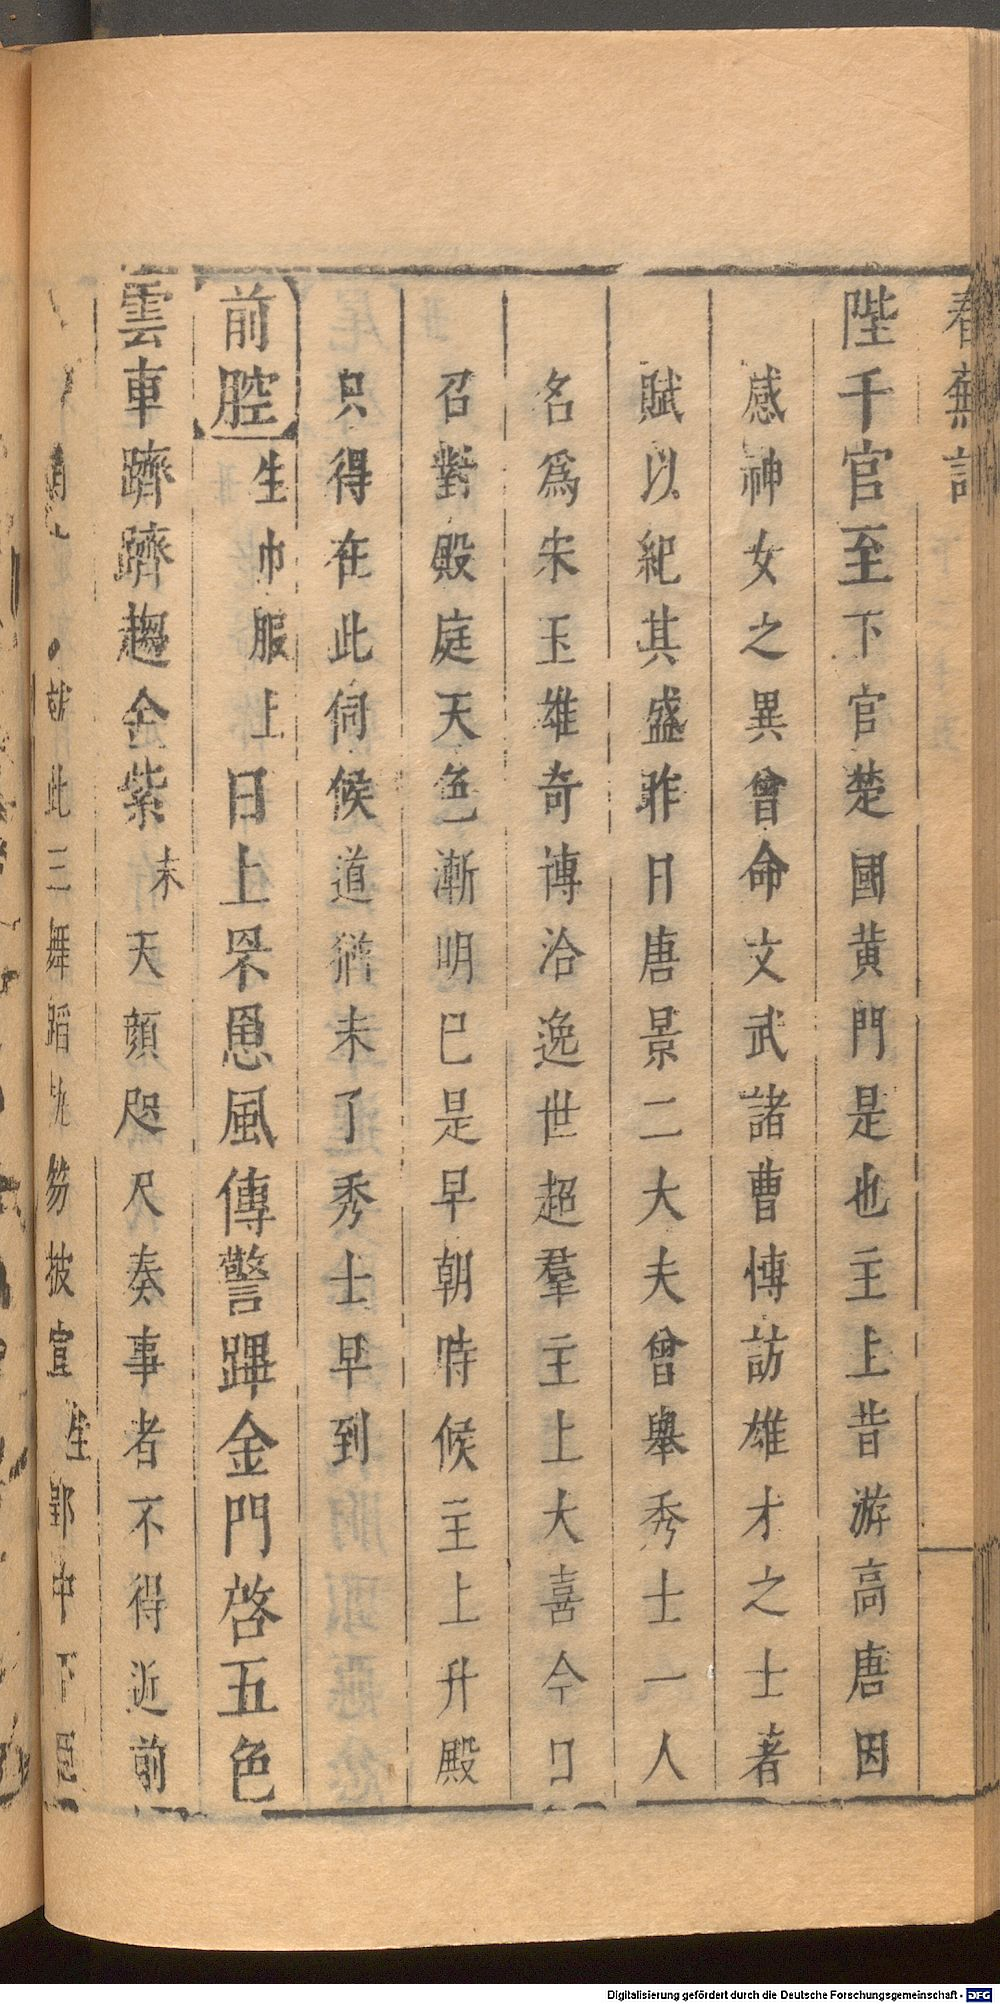 春蕪記
陛千官至下官楚國黄門是也主上昔游高唐因
感神女之異曾命文武諸曹愽訪雄才之士著
賦以紀其盛昨日唐景二大夫曾舉秀士一人
名爲宋玉雄奇博洽逸世超羣主上大喜今日
召對殿庭天色漸明巳是早朝時候主上升殿
只得在此伺候道猶未了秀士早到
前腔生巾服上日上罘罳風傳警蹕金門啓五色
雲車躋躋趨金紫末天顔咫尺奏事者不得近前
就此三舞蹈㧊笏披宣生郢中下邑
Digitalisierung gefördert durch die Deutsche Forschungsgemeinschaft - DFG